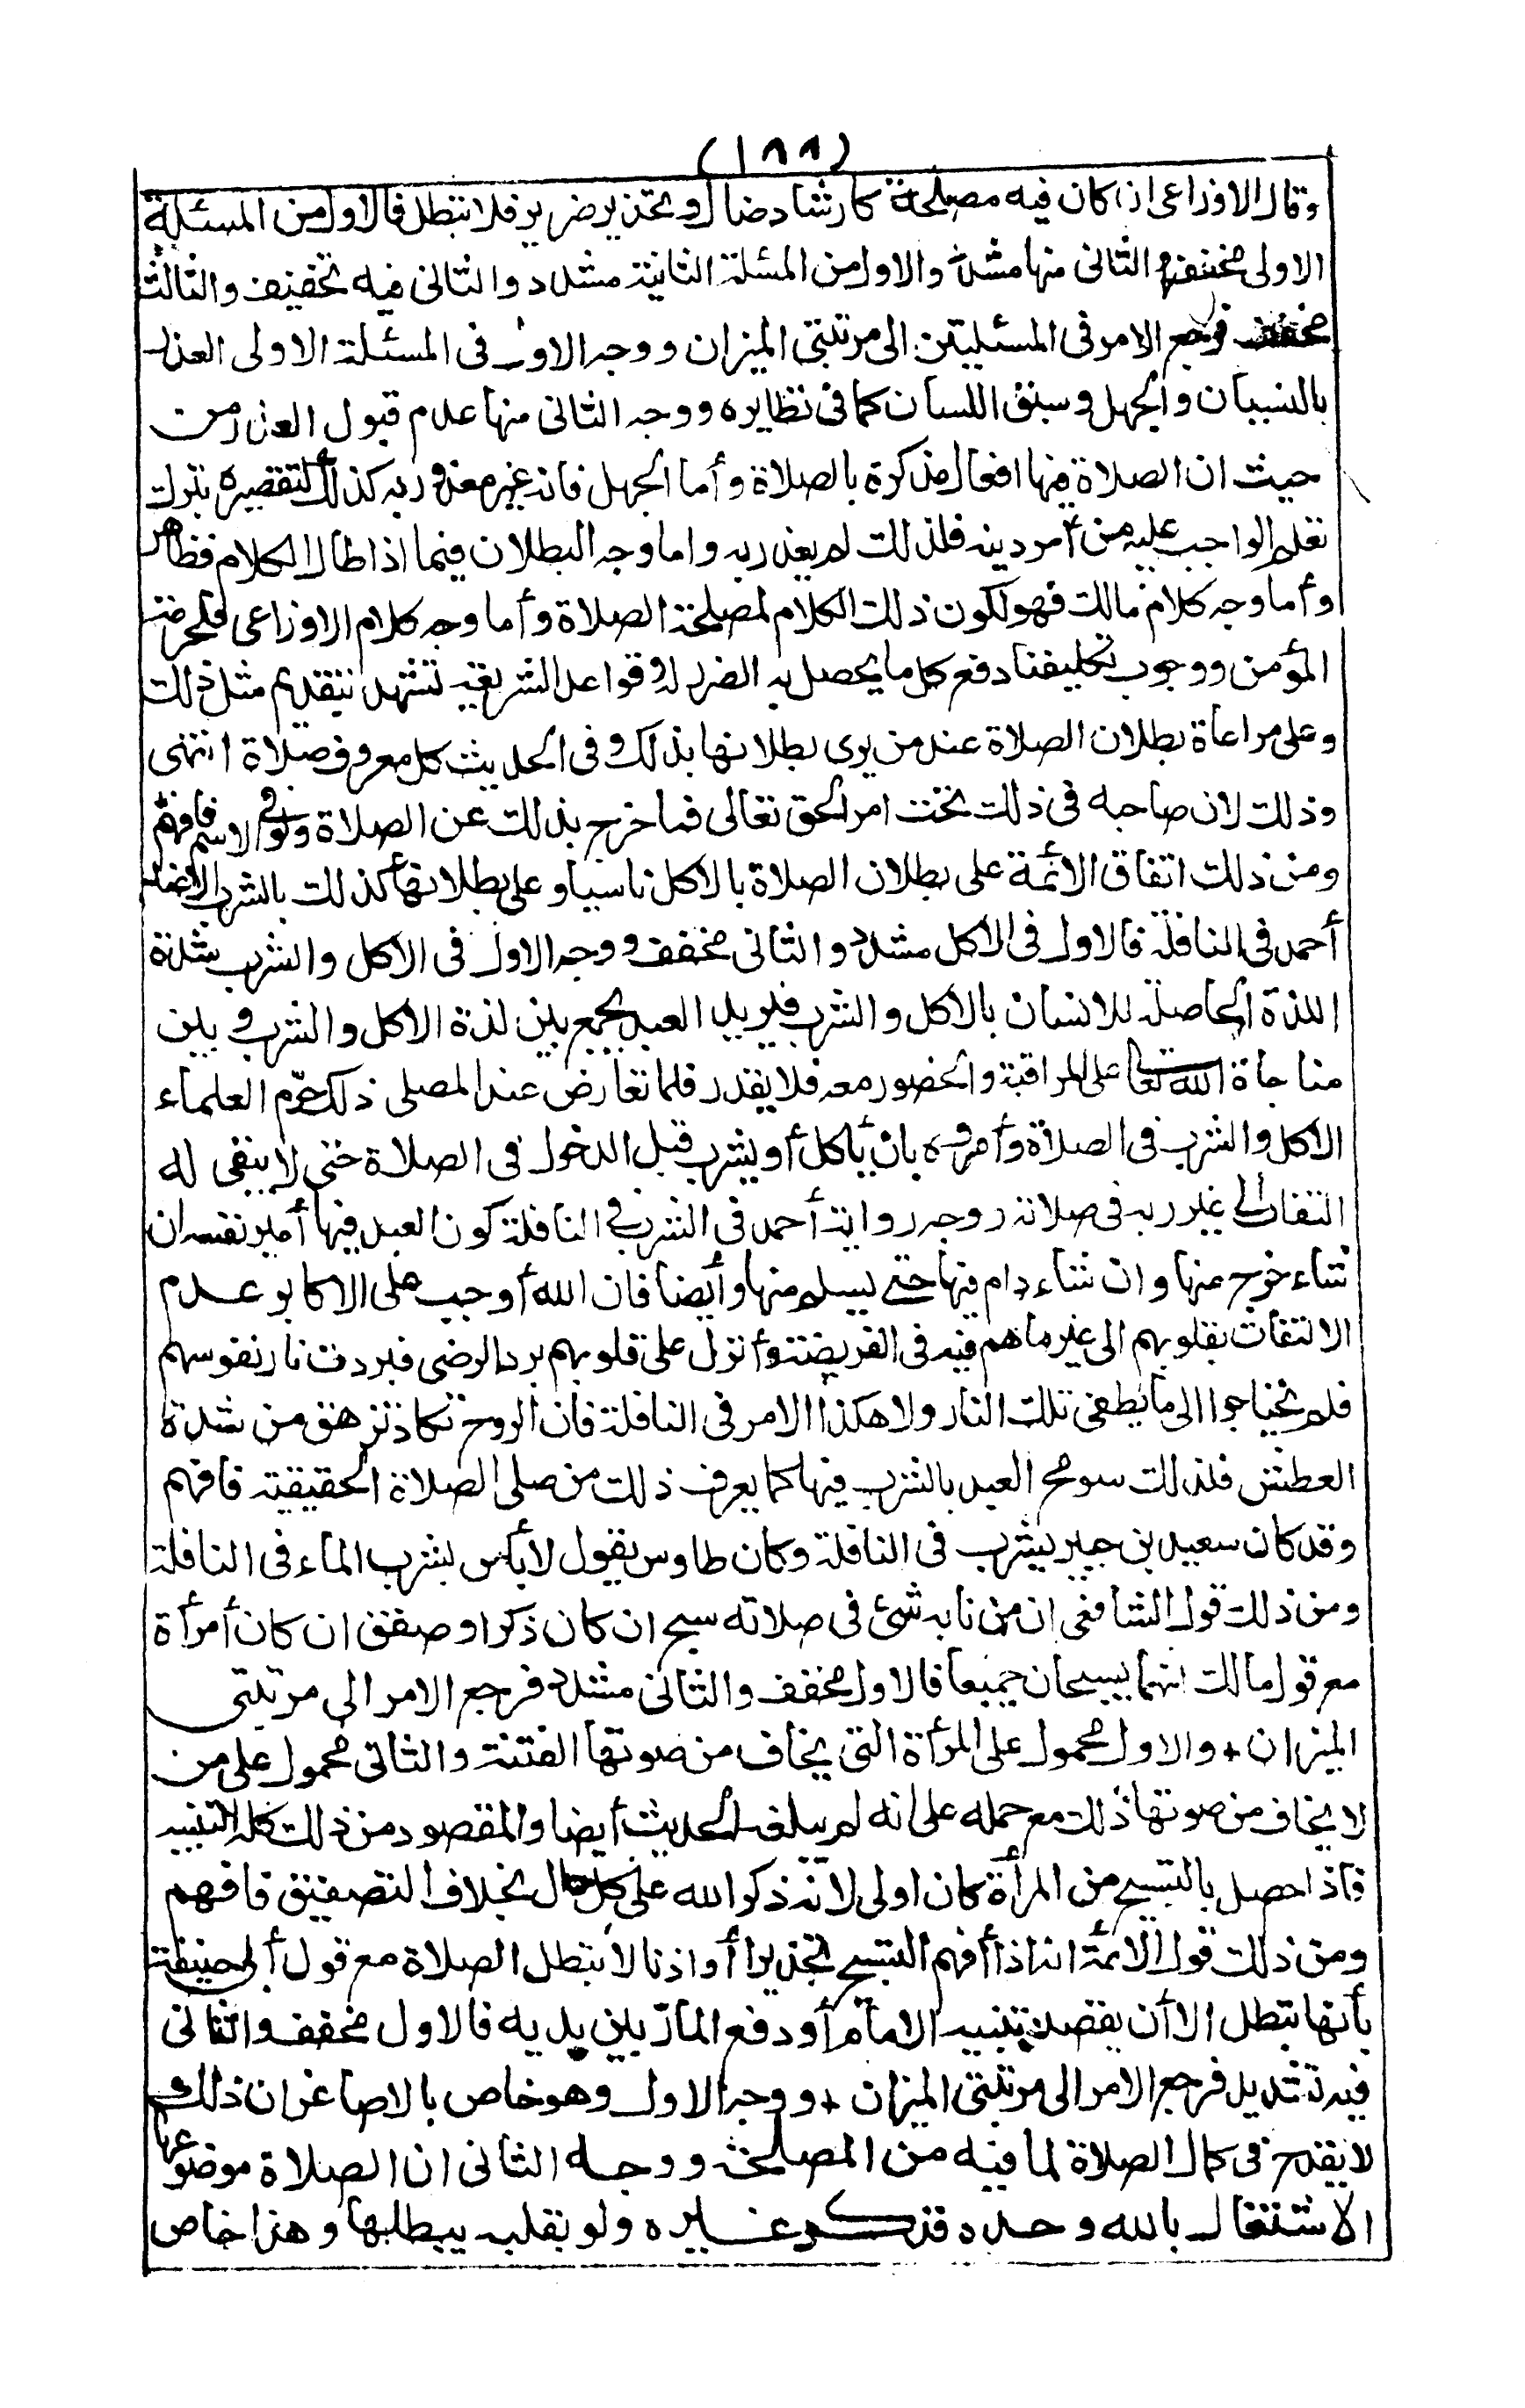 (١٨٨)
وقال الاوزاعى اذا كان فيه مصلحة كارشاد ضال وتحذير ضرير فلا تبطل فالاول من المسئلة
الاولى مخفف والثانى منها مشدد والاول من المسئلة الثانية مشدد والثانى فيه تخفيف والثالث
مخفف فرجع الامر فى المسئلتين الى مرتبتى الميزان ووجه الاول فى المسئلة الاولى العذر
بالنسيان والجهل وسبق اللسان كما فى نظايره ووجه الثانى منها عدم قبول العذر من
حيث ان الصلاة فيها افعال مذكرة بالصلاة وأما الجهل فانه غير معذور به كذلك لتقصيره بترك
تعلم الواجب عليه من امر دينه فلذلك لم يعذر به واما وجه البطلان فيما اذا طال الكلام فظاهر
وأما وجه كلام مالك فهو لكون ذلك الكلام لمصلحة الصلاة وأما وجه كلام الاوزاعى فلحرمة
المؤمن ووجوب تكليفنا دفع كل ما يحصل به الضرر له وقواعد الشريعة تشهد بتقديم مثل ذلك
وعلى مراعاة بطلان الصلاة عند من يرى بطلانها بذلك وفى الحديث كل معروف صلاة انتهى
وذلك لان صاحبه فى ذلك تحت امر الحق تعالى فما خرج بذلك عن الصلاة ولو فى الاسم فافهم
ومن ذلك اتفاق الائمة على بطلان الصلاة بالاكل ناسيا وعلى بطلانها كذلك بالشرب الا عند
أحمد فى النافلة فالاول فى الاكل مشدد والثانى مخفف ووجه الاول فى الاكل والشرب شدة
اللذة الحاصلة للانسان بالاكل والشرب فيريد العبد يجمع بين لذة الاكل والشرب وبين
مناجاة الله تعا على المراقبة والحضور معه فلا يقدر فلما تعارض عند المصلى ذلك حرّم العلماء
الاكل والشرب فى الصلاة وأمروه بان يأكل أو يشرب قبل الدخول فى الصلاة حتى لا يبقى له
التفات الى غير ربه فى صلاته ووجه رواية أحمد فى الشرب فى النافلة كون العبد فيها أمير نفسه ان
شاء خرج عنها وان شاء دام فيها حتى يسلم منها وأيضا فان الله أوجب على الاكابر عدم
الالتفات بقلوبهم الى غير ما هم فيه فى الفريضة وأنزل على قلوبهم برد الرضى فبردت نار نفوسهم
فلم يحتاجوا الى ما يطفى تلك النار ولا هكذا الامر فى النافلة فان الروح تكاد تزهق من شدة
العطش فلذلك سومح العبد بالشرب فيها كما يعرف ذلك من صلى الصلاة الحقيقية فافهم
وقد كان سعيد بن جبير يشرب فى النافلة وكان طاوس يقول لا بأس بشرب الماء فى النافلة
ومن ذلك قول الشافعى ان من نابه شئ فى صلاته سبح ان كان ذكرا وصفق ان كان أمرأة
مع قول مالك انهما يسبحان جميعا فالاول مخفف والثانى مشدد فرجع الامر الى مرتبتى
الميزان + والاول محمول على المرأة التى يخاف من صوتها الفتنة والثانى محمول على من
لا يخاف من صوتها ذلك مع حمله على انه لم يبلغه الحديث أيضا والمقصود من ذلك كله التنبيه
فاذا حصل بالتسبيح من المرأة كان اولى لانه ذكر الله على كل حال بخلاف التصفيق فافهم
ومن ذلك قول الائمة انه اذا أفهم التسبيح تحذيرا أو اذنا لا تبطل الصلاة مع قول أبى حنيفة
بأنها تبطل الا أن يقصد تنبيه الامام أو دفع المارّ بين يديه فالاول مخفف والثانى
فيه تشديد فرجع الامر الى مرتبتى الميزان + ووجه الاول وهو خاص بالاصاغر ان ذلك
لا يقدح فى كمال الصلاة لما فيه من المصلحة ووجه الثانى ان الصلاة موضوعها
الاشتغال بالله وحده فذكر غيره ولو بقلبه يبطلها وهذا خاص